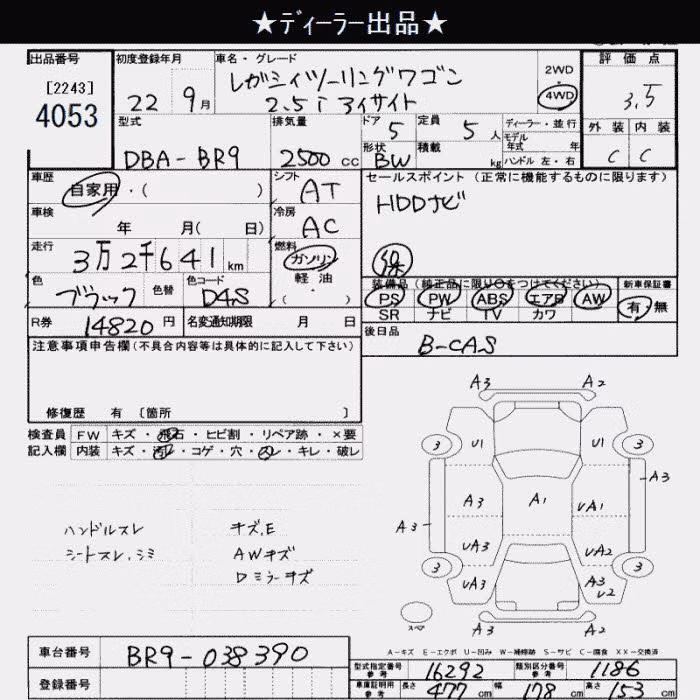 ★ディーラー出品★
出品番号
[2243]
4053
初度登録年月
22 9月
車名・グレード
レガシィツーリングワゴン
2.5i アイサイト
2WD
4WD
評価点
3.5
外装 内装
C C
型式
DBA-BR9
排気量
2500 cc
ドア
5
定員
5 人
形状
BW
積載
kg
ディーラー・並行
モデル
年式 年
ハンドル 左・右
車歴
自家用・( )
シフト
AT
セールスポイント(正常に機能するものに限ります)
HDDナビ
車検
年 月( 日)
冷房
AC
走行
3万2千641 km
燃料
ガソリン
軽油
( )
色
ブラック
色替
色コード
D4S
装備品(純正品に限り○をつけてください)
PS PW ABS エアB AW
SR ナビ TV カワ
新車保証書
有・無
R券
14820円
名変通知期限 月 日
後日品
B-CAS
注意事項申告欄(不具合内容等は具体的に記入して下さい)
修復歴 有 〔箇所 〕
検査員 FW キズ・飛石・ヒビ割・リペア跡・×要
記入欄 内装 キズ・汚レ・コゲ・穴・スレ・キレ・破レ
ハンドルスレ
シートスレ、シミ
キズ、E
AWキズ
Dミラーキズ
A3 A2
3 U1 U1 3
A3
A3 A1 UA1
A3
UA3 UA2
3 3
UA3 A3
U2
スペア
A3 A2
A-キズ E-エクボ U-凹み W-補修跡 S-サビ C-腐食 XX-交換済
車台番号
BR9-038390
登録番号
型式指定番号
参考
16292
類別区分番号
参考
1186
車庫証明用
参考
長さ 477 cm 幅 178 cm 高さ 153 cm